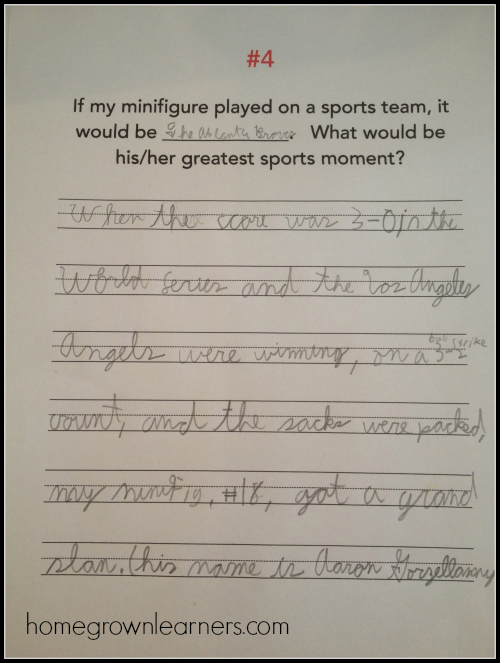 #4
If my minifigure played on a sports team, it
would be The Atlanta Braves. What would be
his/her greatest sports moment?
When the score was 3-0 in the
World Series and the Los Angeles
ball strike
Angels were winning, on a 3-2
count, and the sacks were packed,
my minifig, #18, got a grand
slan. (his name is Aaron
homegrownlearners.com